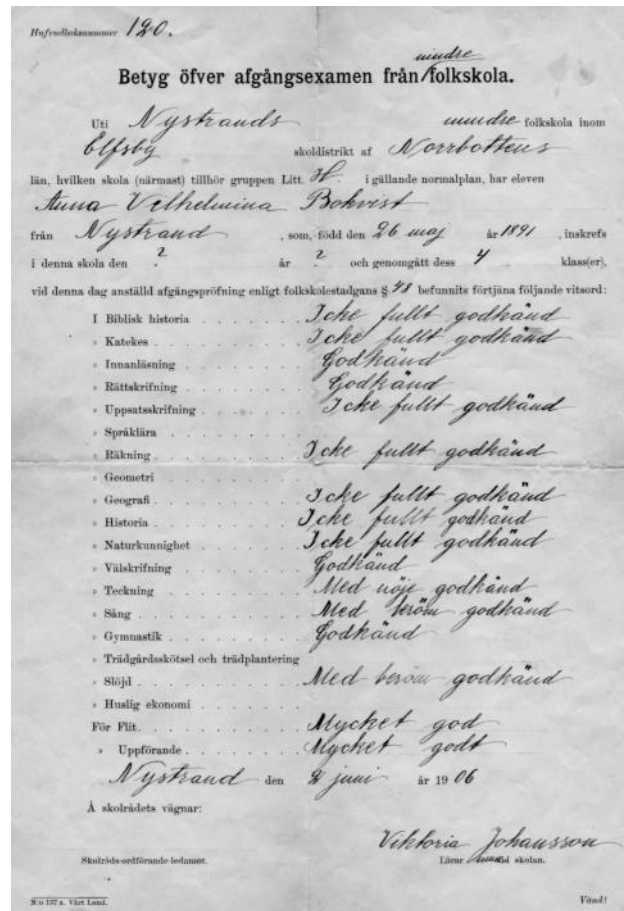 Hufvudboksnummer 120.
mindre
Betyg öfver afgångsexamen från folkskola.
Uti Nystrands mindre folkskola inom
Elfsby skoldistrikt af Norrbottens
län, hvilken skola (närmast) tillhör gruppen Litt. H. i gällande normalplan, har eleven
Anna Vilhelmina Bokvist
från Nystrand , som, född den 26 maj år 1891 , inskrefs
i denna skola den ? år ? och genomgått dess 4 klass(er),
vid denna dag anställd afgångspröfning enligt folkskolestadgans § 48 befunnits förtjäna följande vitsord:
I Biblisk historia . . . . . . . Icke fullt godkänd
» Katekes . . . . . . . . . . Icke fullt godkänd
» Innanläsning . . . . . . . . Godkänd
» Rättskrifning . . . . . . . . Godkänd
» Uppsatsskrifning . . . . . . . Icke fullt godkänd
» Språklära . . . . . . . . .
» Räkning . . . . . . . . . . Icke fullt godkänd
» Geometri . . . . . . . . . .
» Geografi . . . . . . . . . . Icke fullt godkänd
» Historia . . . . . . . . . . Icke fullt godkänd
» Naturkunnighet . . . . . . . Icke fullt godkänd
» Välskrifning . . . . . . . . Godkänd
» Teckning . . . . . . . . . Med nöje godkänd
» Sång . . . . . . . . . . . Med beröm godkänd
» Gymnastik . . . . . . . . . Godkänd
» Trädgårdsskötsel och trädplantering
» Slöjd . . . . . . . . . . . Med beröm godkänd
» Huslig ekonomi . . . . . . .
För Flit . . . . . . . . . . . Mycket god
» Uppförande . . . . . . . . Mycket godt
Nystrand den 2 juni år 1906
Å skolrådets vägnar:
Viktoria Johansson
Skolråds-ordförande-ledamot. Lärar vid skolan.
N:o 137 a. Vårt Land. Vänd!